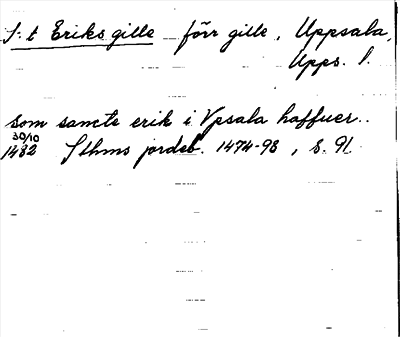 S:t Eriks gille förr gille, Uppsala,
Upps. l.
som sancte erik i Vpsala haffuer..
30/10
1482 Sthms jordeb. 1474-98, s. 91